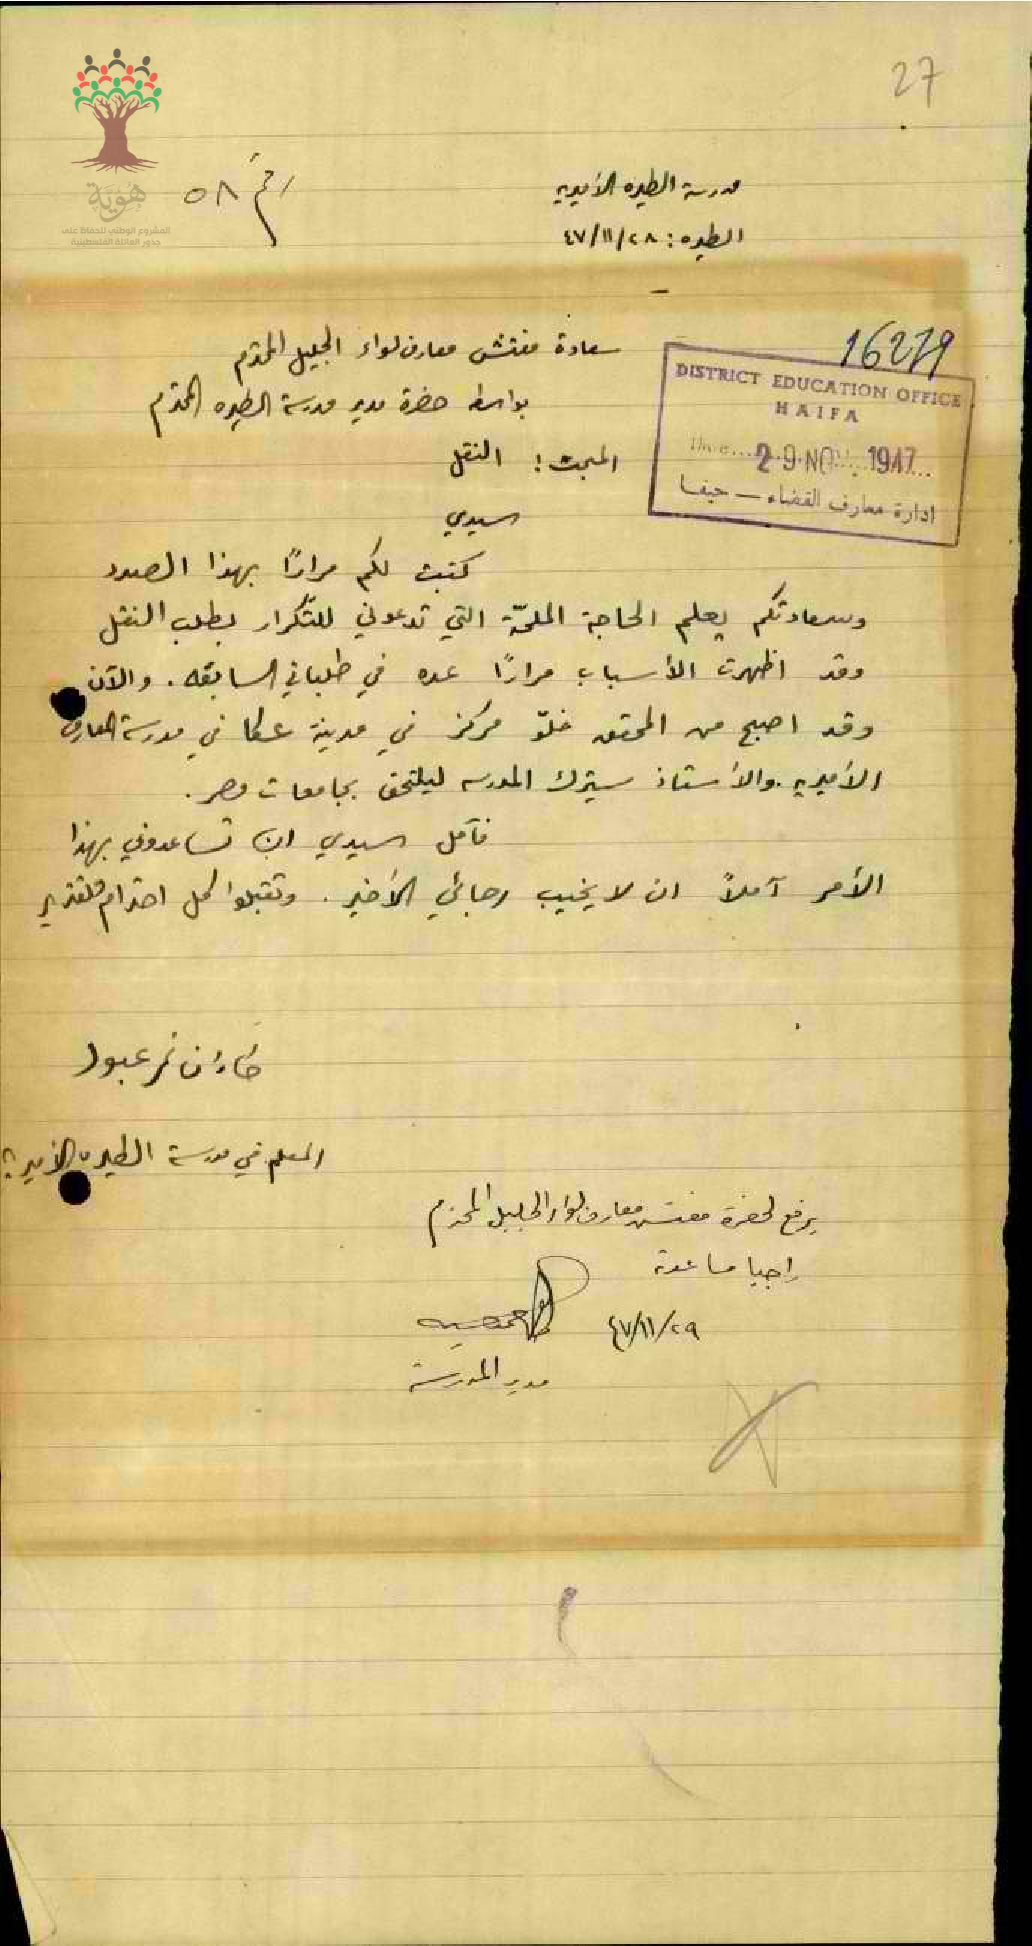 27
هوية
المشروع الوطني للحفاظ على
جذور العائلة الفلسطينية
رقم ٥٨
مدرسة الطيره الأميريه
الطيره: ٤٧/١١/٢٨
16279
DISTRICT EDUCATION OFFICE
HAIFA
Date 29 NOV 1947
ادارة معارف القضاء – حيفا
سعادة مفتش معارف لواء الجليل المحترم
بواسطة حضرة مدير مدرسة الطيره المحترم
المبحث: النقل
سيدي
كتبت لكم مرارًا بهذا الصدد
وسعادتكم يعلم الحاجة الملحّة التي تدعوني للتكرار بطلب النقل
وقد اظهرت الأسباب مرارًا عده في طلباتي السابقه. والآن
وقد اصبح من المحقق خلوّ مركز في مدينة عكا في مدرسة المعارف
الأميريه. والأستاذ سيترك المدرسه ليلتحق بجامعات مصر.
فآمل سيدي ان تساعدوني بهذا
الأمر آملاً ان لا يخيب رجائي الأخير. وتقبلوا كل احترام
نمر عبود
المعلم في مدرسة الطيره الأميريه
يرفع لحضرة مفتش معارف لواء الجليل المحترم
راجيا مساعدته
٤٧/١١/٢٩
مدير المدرسة